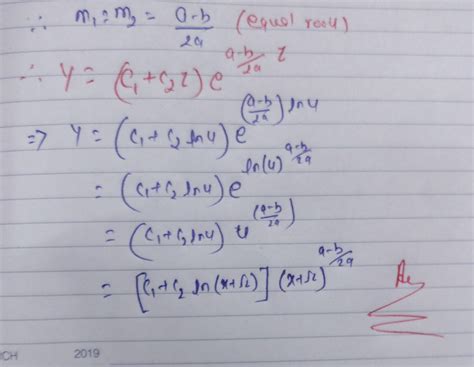 ∵ m₁ = m₂ = (a-b)/2a (equal roots)
∴ y = (c₁+c₂z) e^((a-b)/2a z)
⇒ y = (c₁+c₂ ln u) e^((a-b)/2a) ln u
= (c₁+c₂ ln u) e^(ln(u)^((a-b)/2a))
= (c₁+c₂ ln u) u^((a-b)/2a)
= [c₁+c₂ ln(x+Ω)] (x+Ω)^((a-b)/2a)
2019